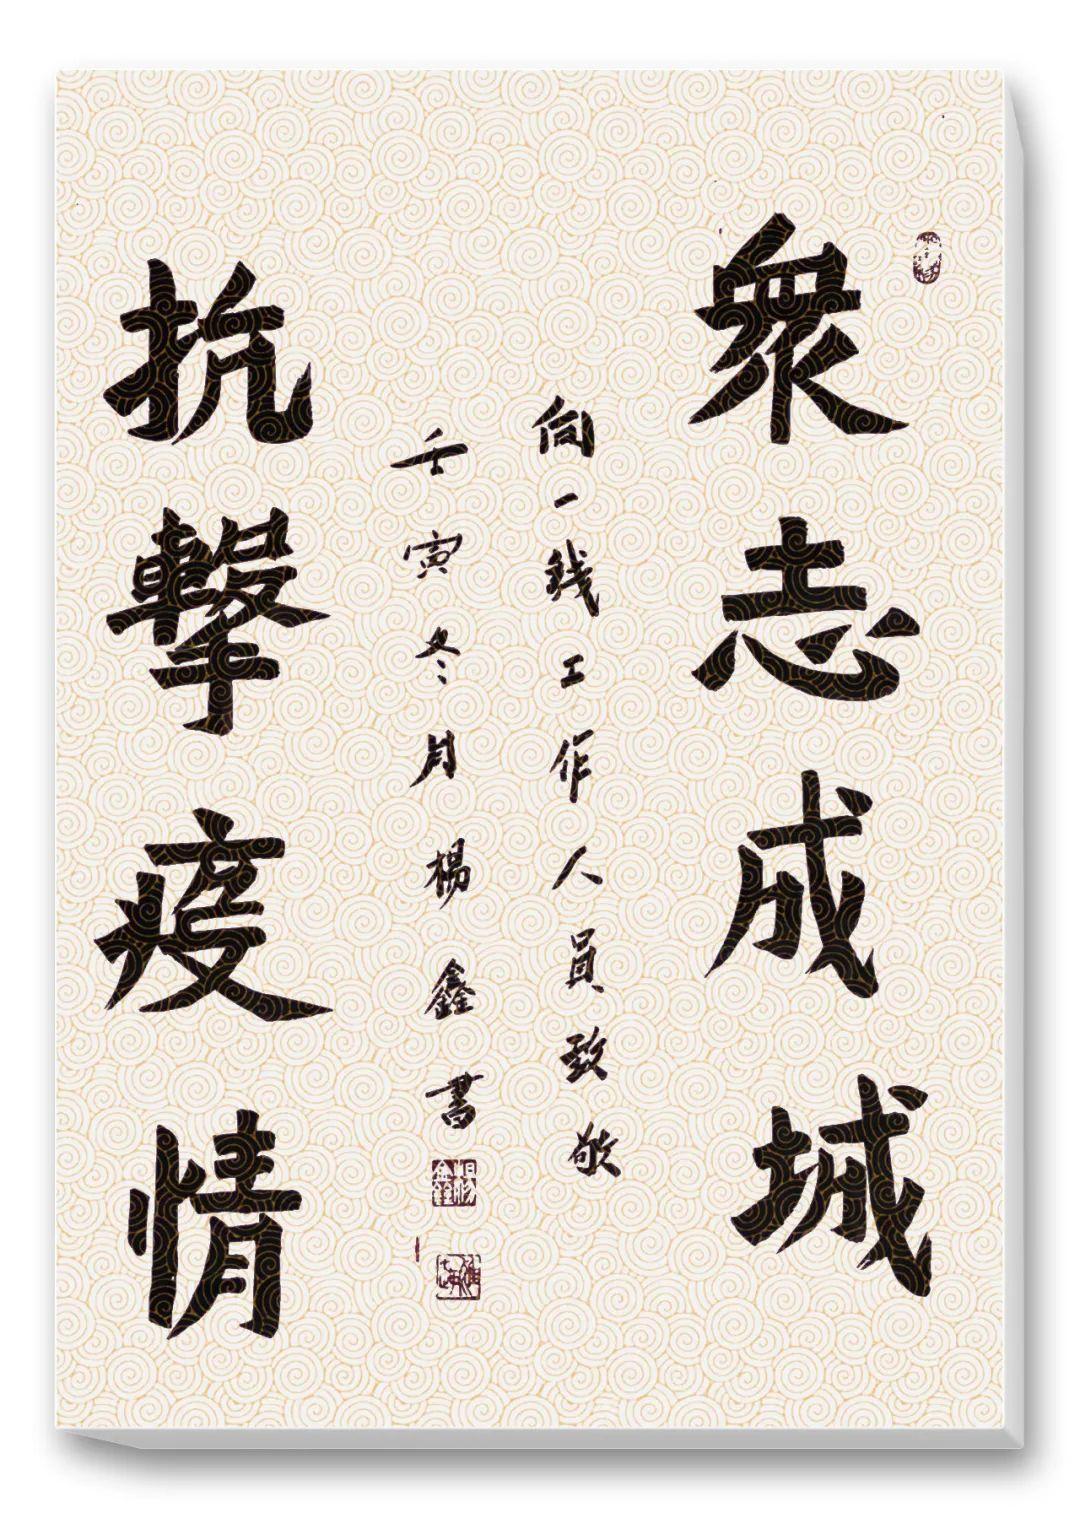 衆志成城
向一綫工作人員致敬
壬寅冬月楊鑫書
抗擊疫情